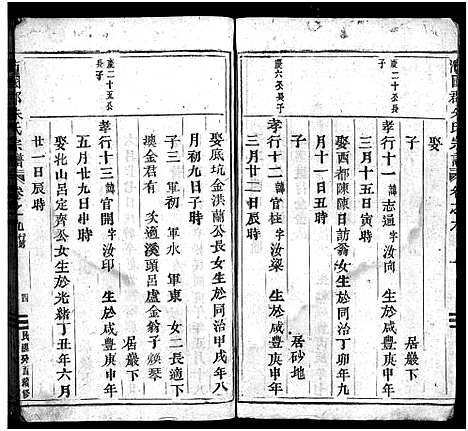 慶二十公長子
娶
孝行十一 諱志通 字汝向 生於咸豐庚申年
三月十五日寅時 居巖下
娶西都陳陳日訪翁女生於同治丁卯年九
月十一日丑時
慶六公長子
孝行十二 諱官柱 字汝樑 生於咸豐庚申年
三月廿二日辰時 居砂地
娶底坑金洪蘭公長女生於同治甲戌年八
月初九日子時
子三 軍初 軍水 軍東 女二長適下
墺金君有 次適溪頭呂盧金翁子煥琴
慶二十五公長子
孝行十三 諱官開 字汝印 生於咸豐庚申年
五月廿九日申時 居巖下
娶北山呂定齊公女生於光緒丁丑年六月
廿一日辰時
朱氏宗譜
四
民國癸酉續修